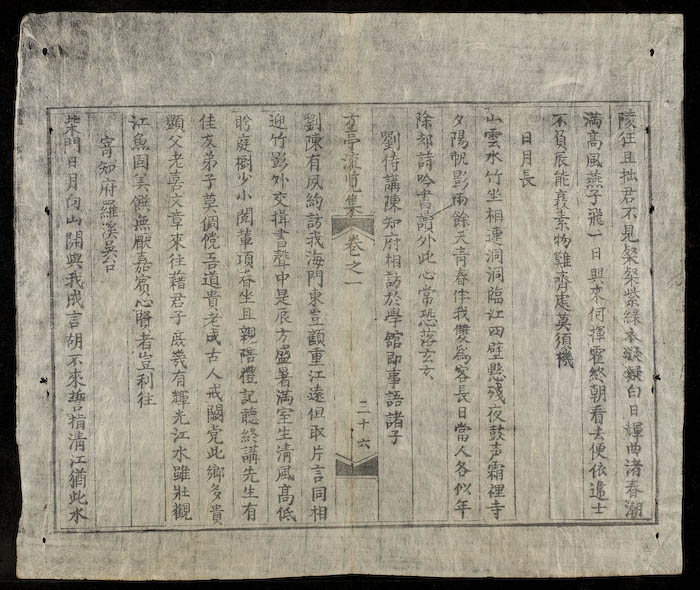 陵狂且拙君不見粲粲紫綠衣凝凝白日輝曲渚春潮
滿高風燕子飛一日興來何揮霍終朝看去便依違士
不負辰能義素物雖齊處莫須機
日月長
山雲水竹坐相連洞洞臨江四壁懸殘夜鼓声霜裡寺
夕陽帆影雨餘天青春伴我雙為客長日當人各似年
除却詩吟書讀外此心常恐落玄玄
劉侍講陳知府相訪於學館即事語諸子
方亭流覽集
卷之一
二十六
劉陳有夙約訪我海門東豈顧重江遠但取片言同相
迎竹影外交揖書聲中是辰方盛暑滿室生清風高低
盻庭樹少小闻輩項春坐且親陪禮記聽終講先生有
佳友弟子莫倜儻吾道貴老成古人戒闕党此鄉多貴
顯父老喜文章來往藉君子庶幾有輝光江水雖壯觀
江魚固美饌無厭嘉賓心賢者豈利往
寄知府羅溪吳台
柴門日月向山開與我成言胡不來誓指清江猶此水